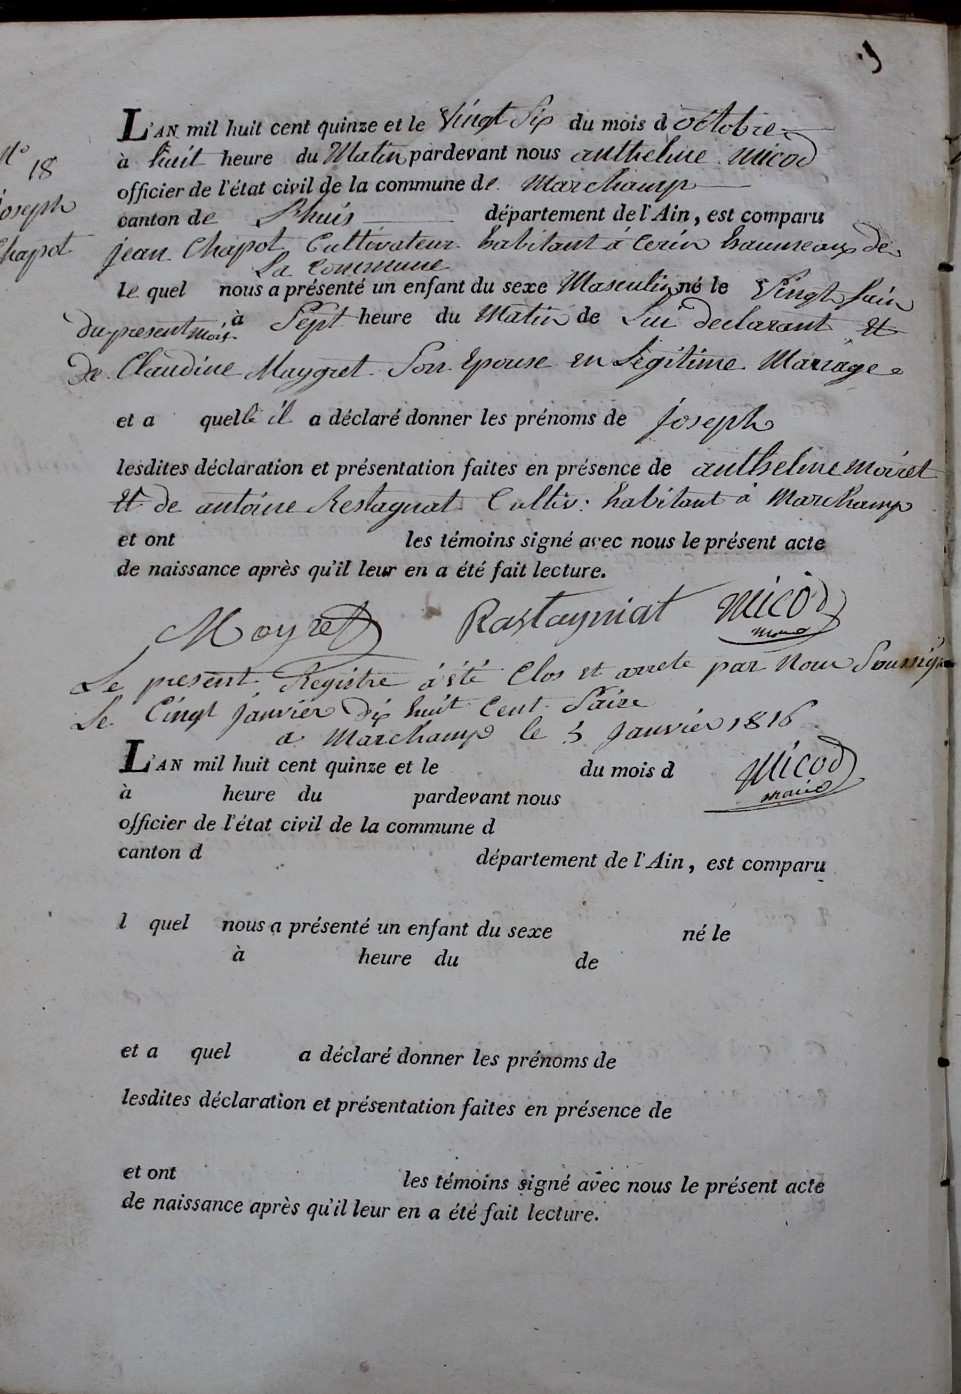 N.º 18
Joseph
Chapot
L'AN mil huit cent quinze et le Vingt Six du mois d octobre
à huit heure du Matin pardevant nous anthelme micod
officier de l'état civil de la commune de Marchamp
canton de Lhuis département de l'Ain, est comparu
jean Chapot Cultivateur habitant à Cerin hammeaux de
La Commune
le quel nous a présenté un enfant du sexe Masculin né le Vingt
du present mois à Sept heure du Matin de Lui declarant Et
de Claudine Maygret Son Epouse en Légitime Mariage
et a quelle il a déclaré donner les prénoms de joseph
lesdites déclaration et présentation faites en présence de anthelme Moiret
Et de antoine Restagnat Cultiv: habitant à Marchamp
et ont les témoins signé avec nous le présent acte
de naissance après qu'il leur en a été fait lecture.
Moyret Rastayniat MICOD
maire
Le present Registre à été Clos et arrete par Nous Soussigné
Le Cinq janvier dix huit Cent Saize
a Marchamp le 5 Janvier 1816
MICOD
maire
L'AN mil huit cent quinze et le du mois d
à heure du pardevant nous
officier de l'état civil de la commune d
canton d département de l'Ain, est comparu
l quel nous a présenté un enfant du sexe né le
à heure du de
et a quel a déclaré donner les prénoms de
lesdites déclaration et présentation faites en présence de
et ont les témoins signé avec nous le présent acte
de naissance après qu'il leur en a été fait lecture.